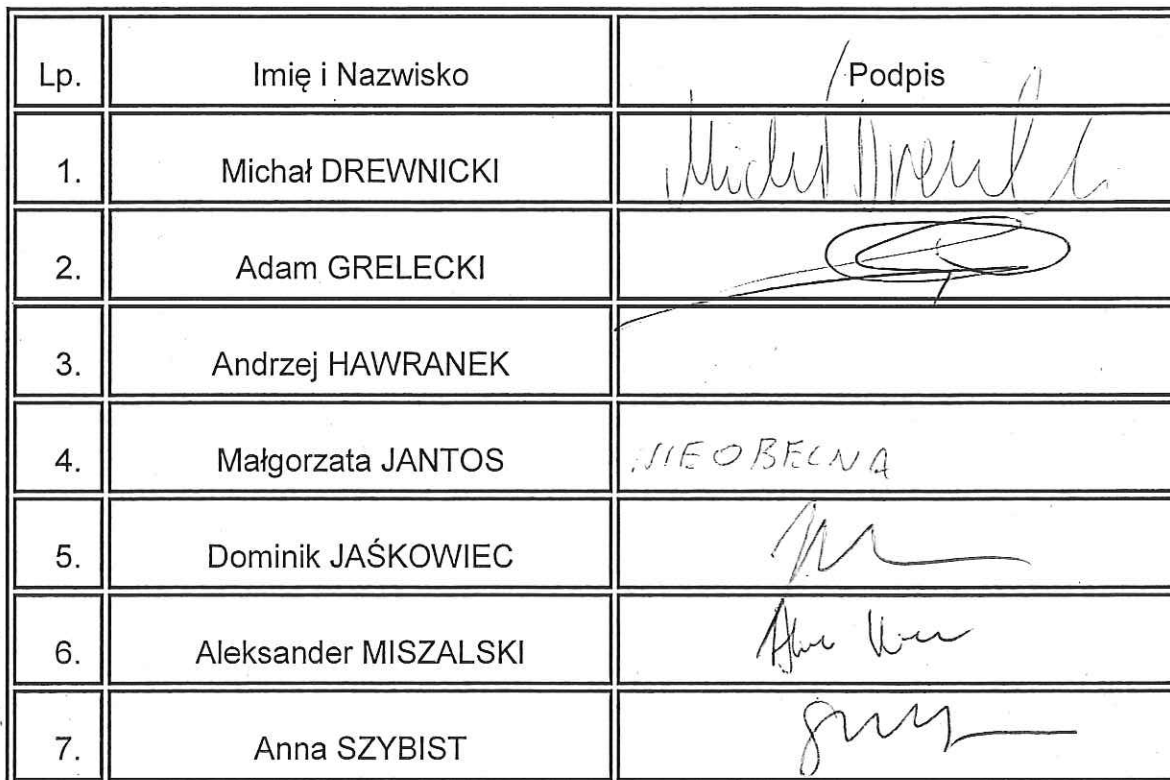 Lp. Imię i Nazwisko Podpis
1. Michał DREWNICKI Michał
2. Adam GRELECKI
3. Andrzej HAWRANEK
4. Małgorzata JANTOS NIEOBECNA
5. Dominik JAŚKOWIEC
6. Aleksander MISZALSKI
7. Anna SZYBIST